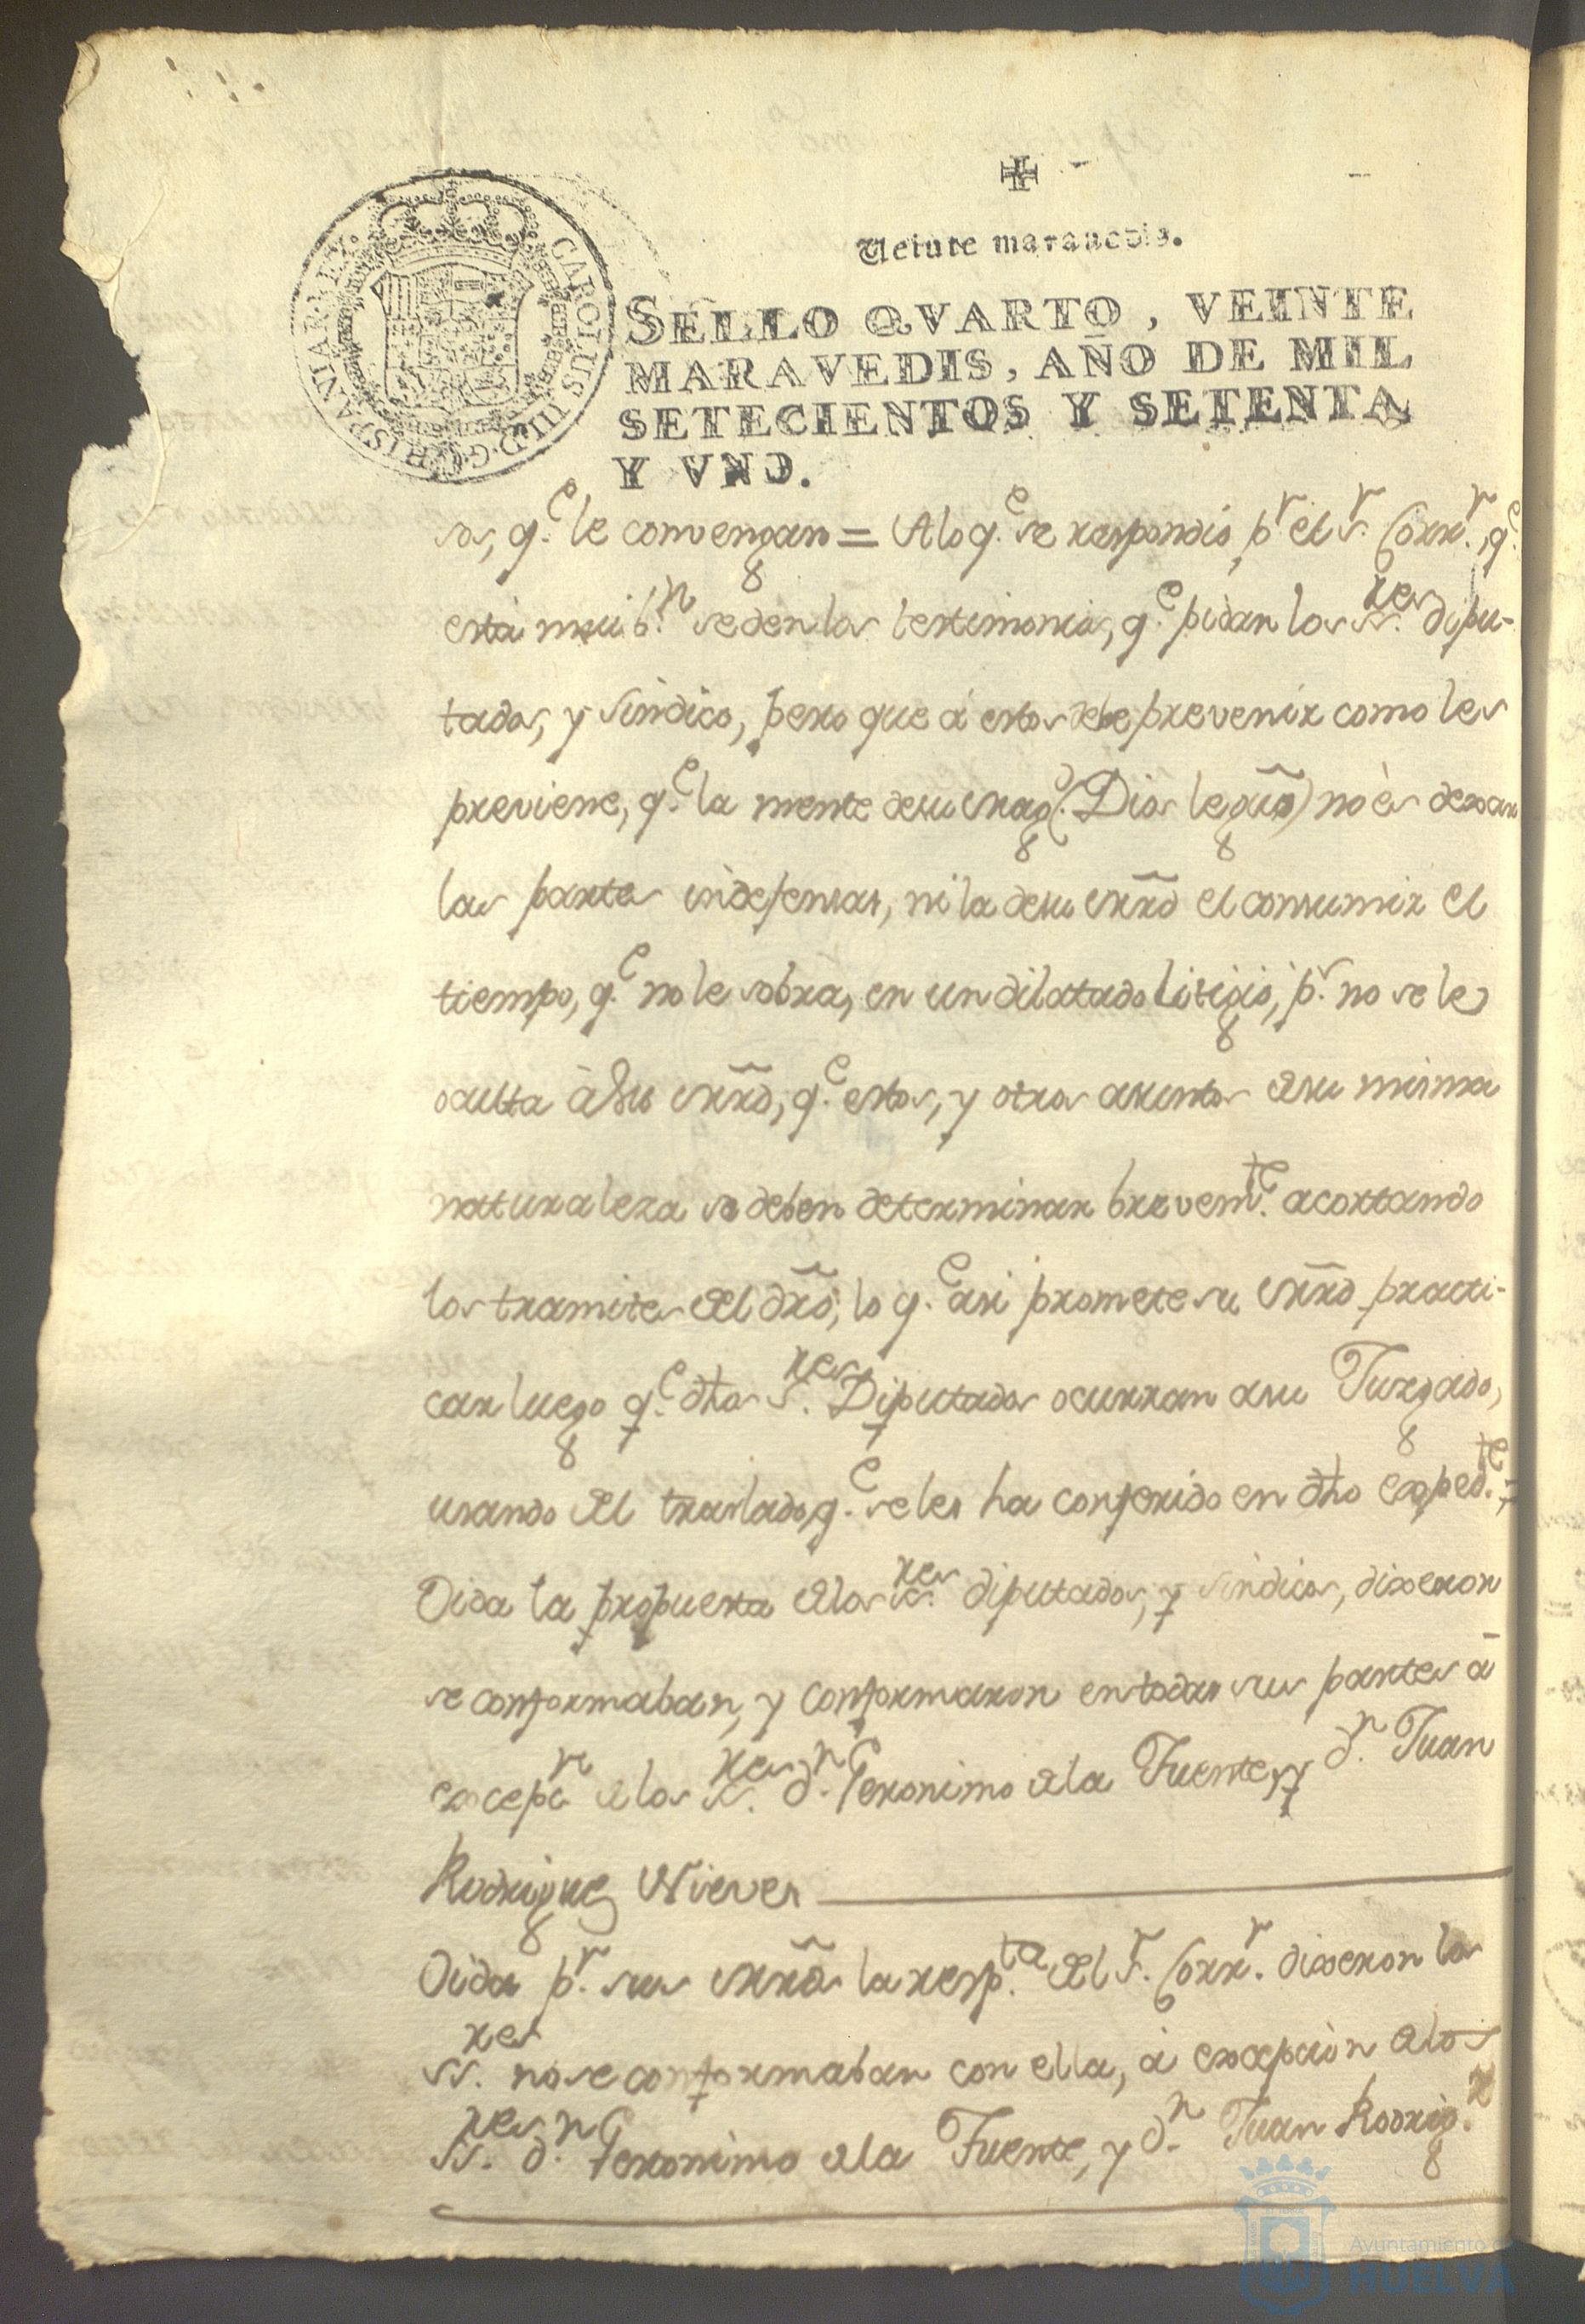 Veinte maravedis.
CAROLUS III D. G. HISPANIAR. REX.
SELLO QVARTO, VEINTE
MARAVEDIS, AÑO DE MIL
SETECIENTOS Y SETENTA
Y VNO.
sos, q.e le convengan = Alo q.e se respondió, p.r el s.r Corr.r, q.e
está mui b.n se den los testimonios, q.e pidan los ss.res dipu-
tados, y síndico, pero que á estos debe prevenir como les
previene, q.e la mente de su Mag.d (Dios le gũe) no ès dexar
las partes indefensas, ni la de su mrd̃ el consumir el
tiempo, q.e no le sobra, en un dilatado litigio, p.r no se le
oculta à Su mrd̃, q.e estos, y otros asuntos de su misma
naturaleza se deben determinar brevem.te acortando
los tramites del dr̃o, lo q.e asi promete su mrd̃ practi-
car luego q.e dhos S.res Diputados ocurran a su Juzgado,
usando del traslado, q.e se les ha conferido en dho exped.te =
Oida la propuesta de los ss.res diputados, y sindicos, dixeron
se conformaban, y conformaron en todas sus partes á
excepc.n de los ss.res d.n Geronimo de la Fuente, y d.n Juan
Rodriguez Nieves
Oida p.r sus mrd̃s la resp.ta del S.r Corr.r dixeron los
ss.res no se conformaban con ella, á excepción de los
ss.res d.n Geronimo de la Fuente, y d.n Juan Rodrig.z
Ayuntamiento de
HUELVA